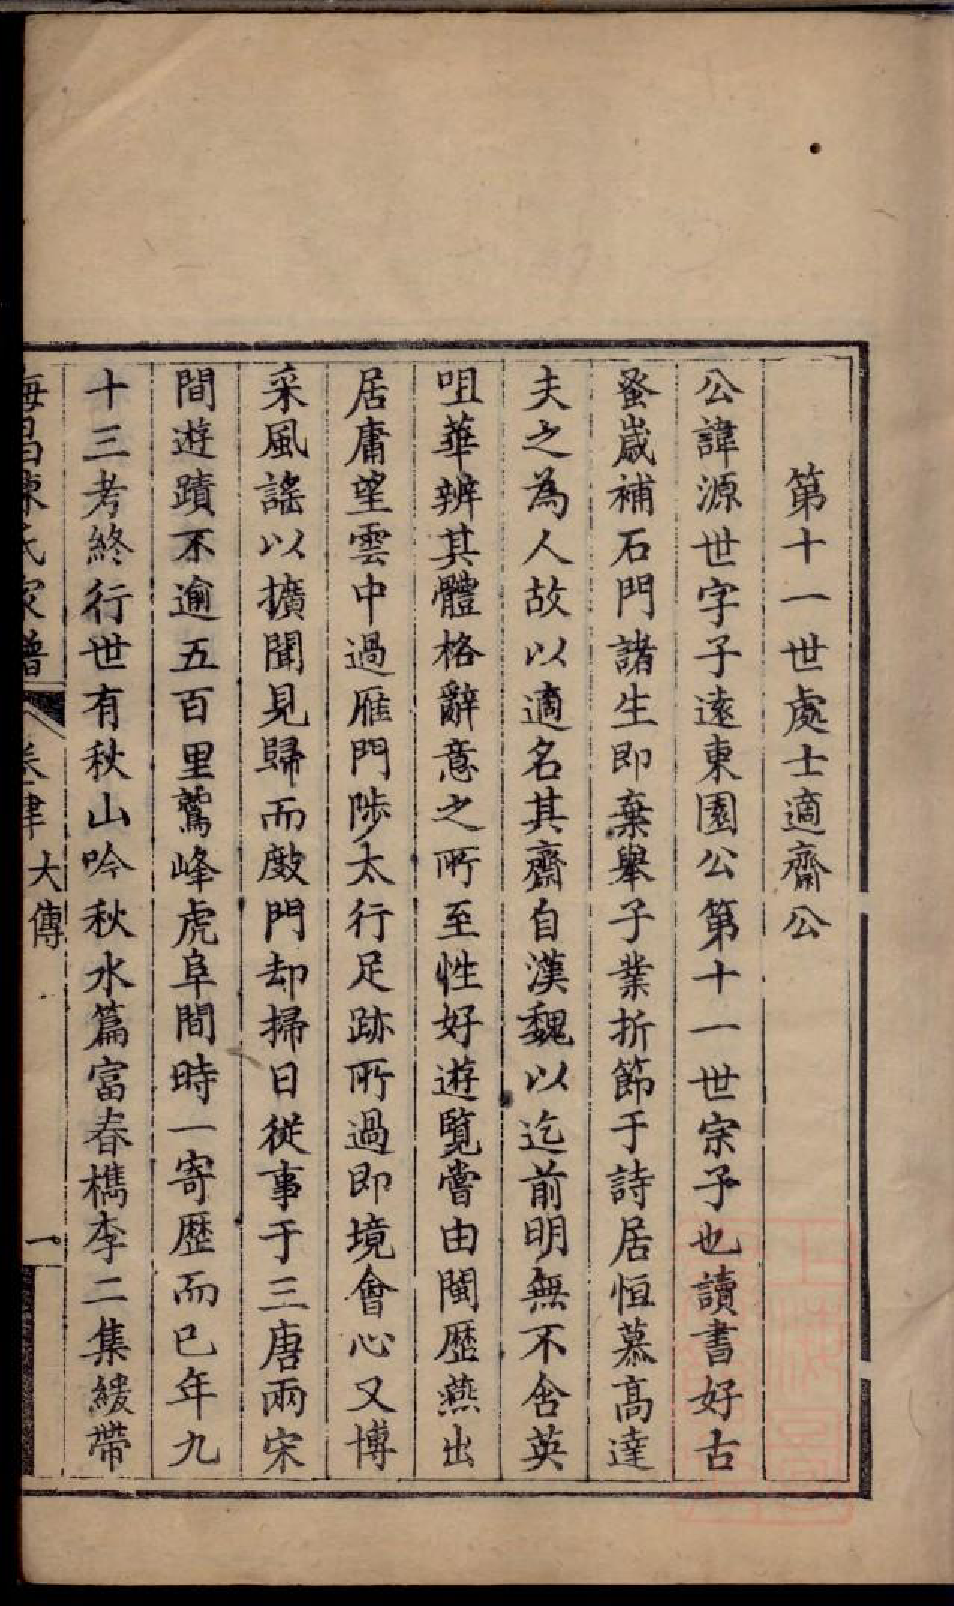 第十一世處士適齋公
公諱源世字子遠東園公第十一世宗子也讀書好古
蚤歲補石門諸生即棄舉子業折節于詩居恒慕高達
夫之為人故以適名其齋自漢魏以迄前明無不含英
咀華辨其體格辭意之所至性好遊覽嘗由閩歷燕出
居庸望雲中過雁門陟太行足跡所過即境會心又博
采風謠以擴聞見歸而敲門却掃日從事于三唐兩宋
間遊蹟不逾五百里鷲峰虎阜間時一寄歷而已年九
十三考終行世有秋山吟秋水篇富春檇李二集緩帶
海昌陳氏家譜
大傳
一